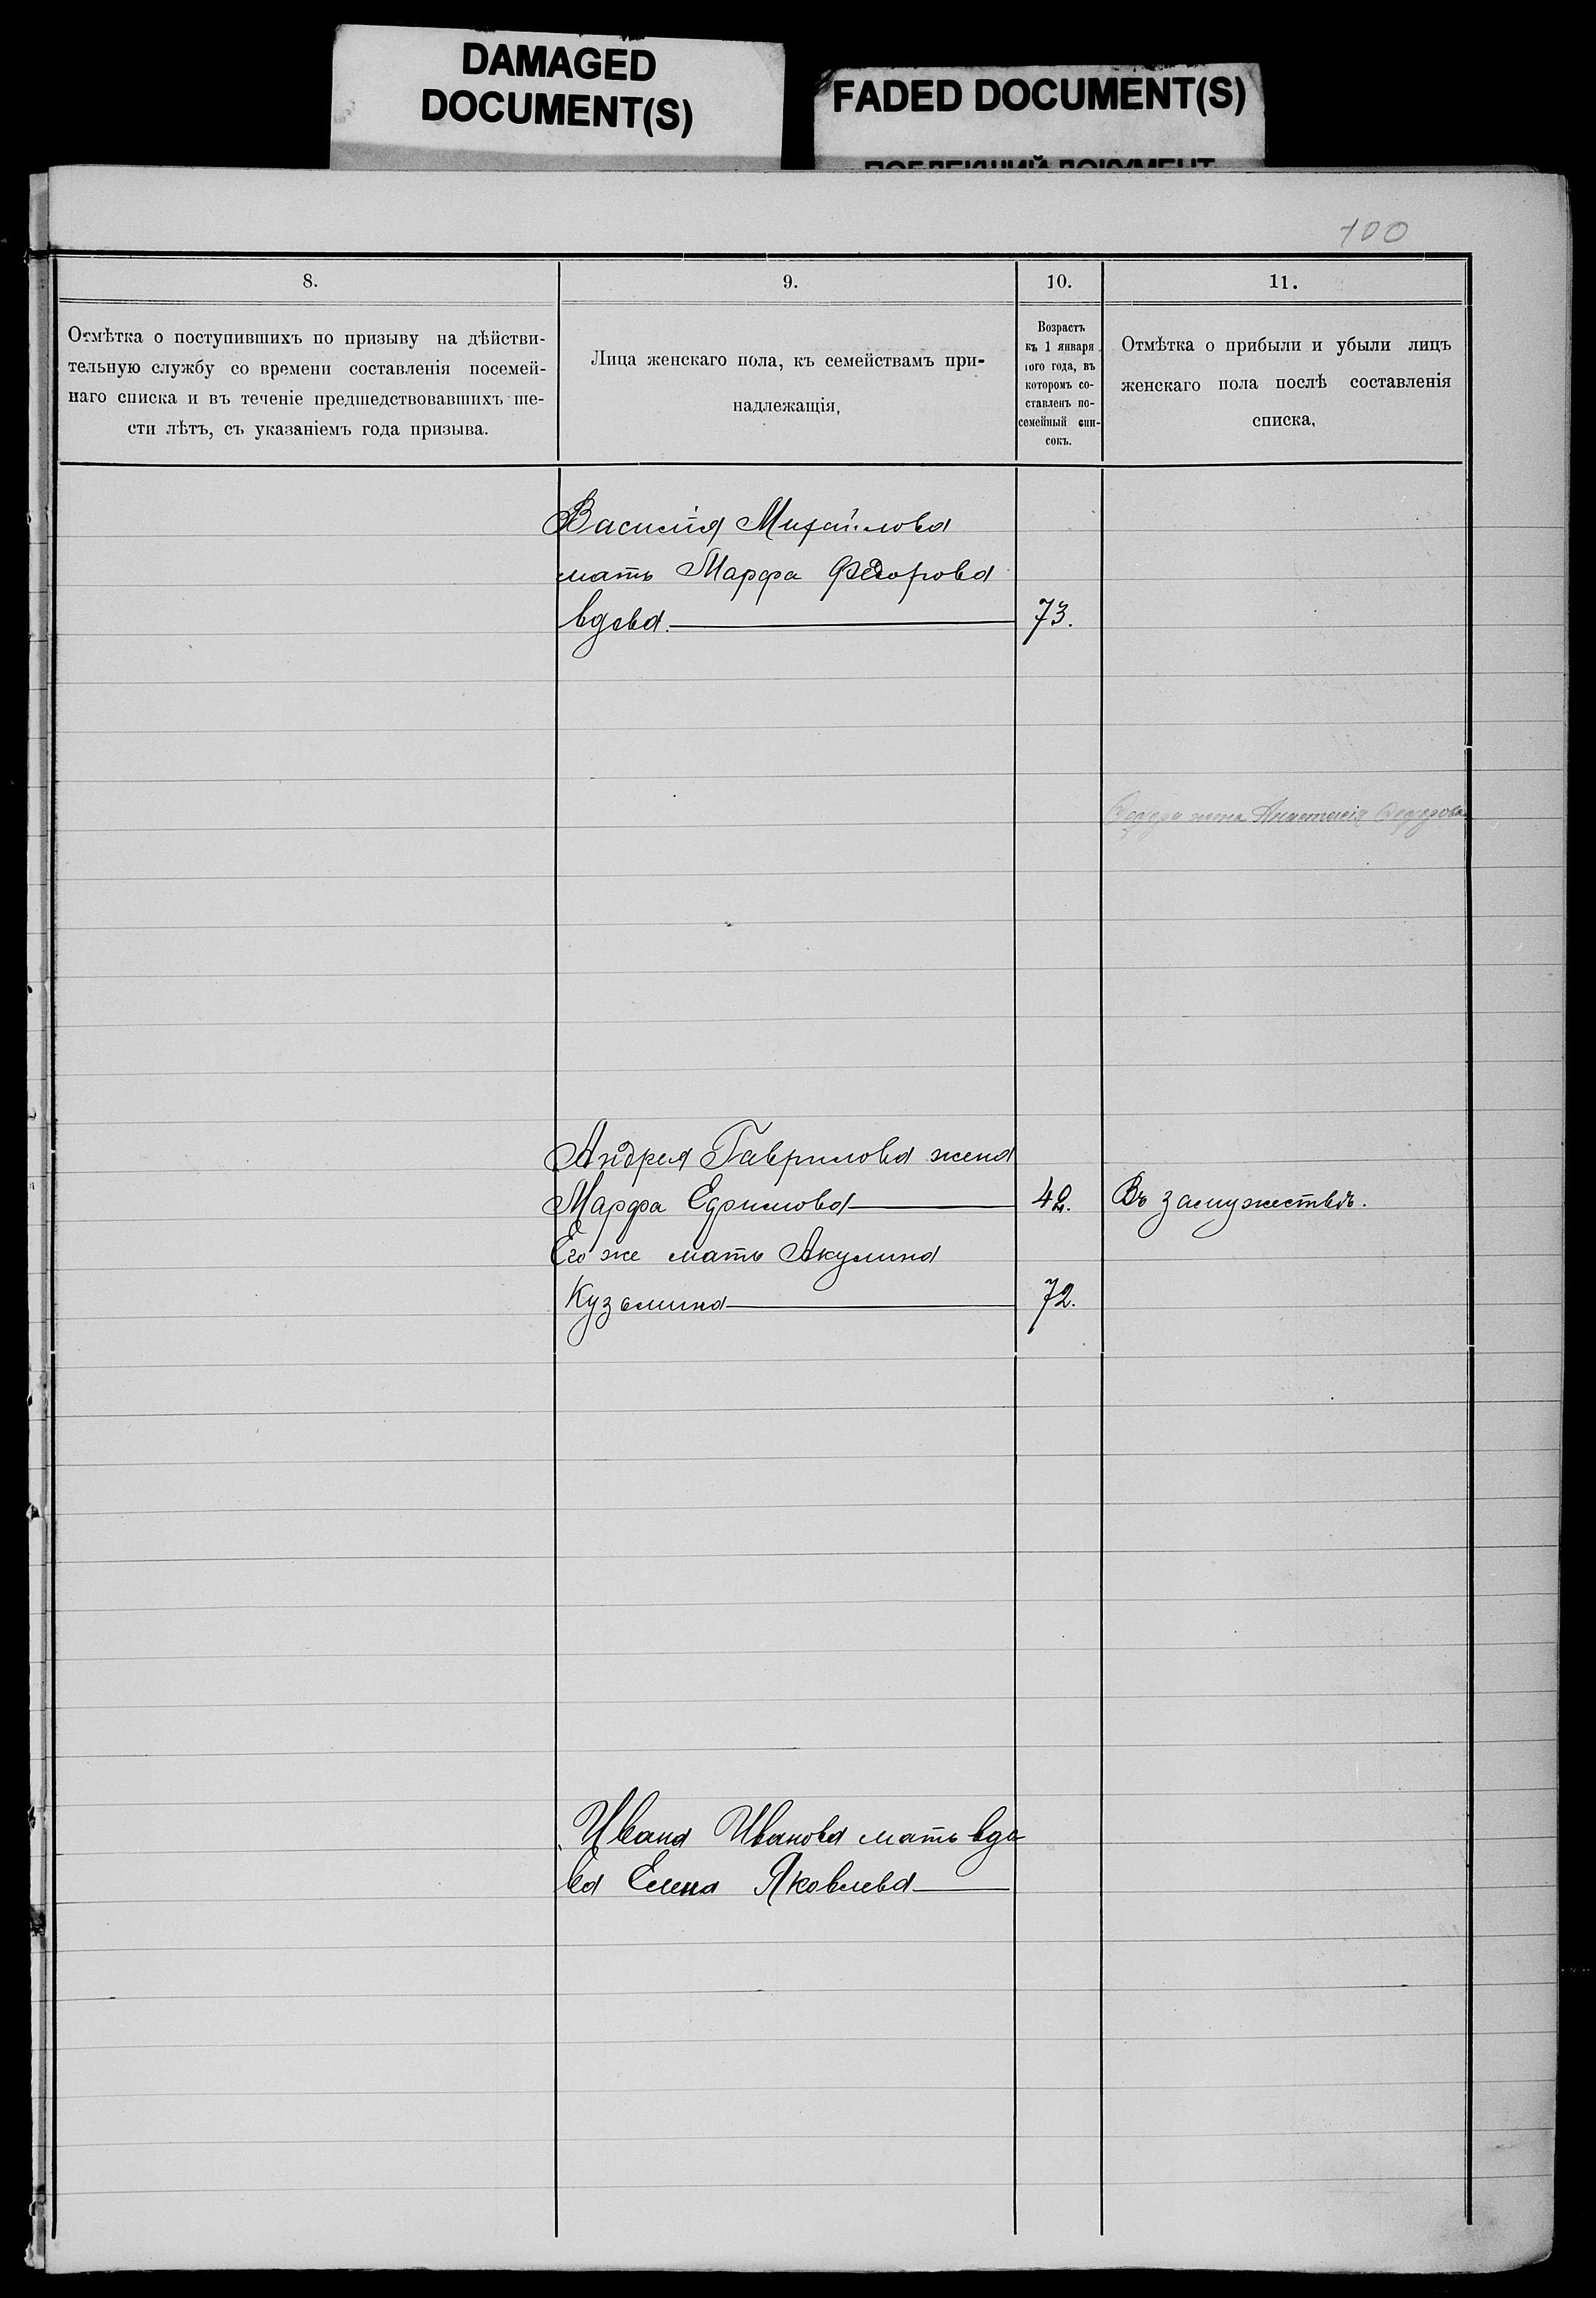 DAMAGED
DOCUMENT(S)
FADED DOCUMENT(S)
ПОБЛЕКШИЙ ДОКУМЕНТ
100
8.
9.
10.
11.
Отмѣтка о поступившихъ по призыву на дѣйстви-
тельную службу со времени составленія посемей-
наго списка и въ теченіе предшедствовавшихъ ше-
сти лѣтъ, съ указаніемъ года призыва.
Лица женскаго пола, къ семействамъ при-
надлежащія,
Возрастъ
къ 1 января
того года, въ
которомъ со-
ставленъ по-
семейный спи-
сокъ.
Отмѣтка о прибыли и убыли лицъ
женскаго пола послѣ составленія
списка,
Василія Михайлова
мать Марфа Федорова
вдова. 73.
жена Анастасія Федорова
Андрея Гаврилова жена
Марфа Ефимова 42. Въ замужествѣ.
Его же мать Акулина
Кузьмина 72.
Ивана Иванова мать вдо
ва Елена Яковлева